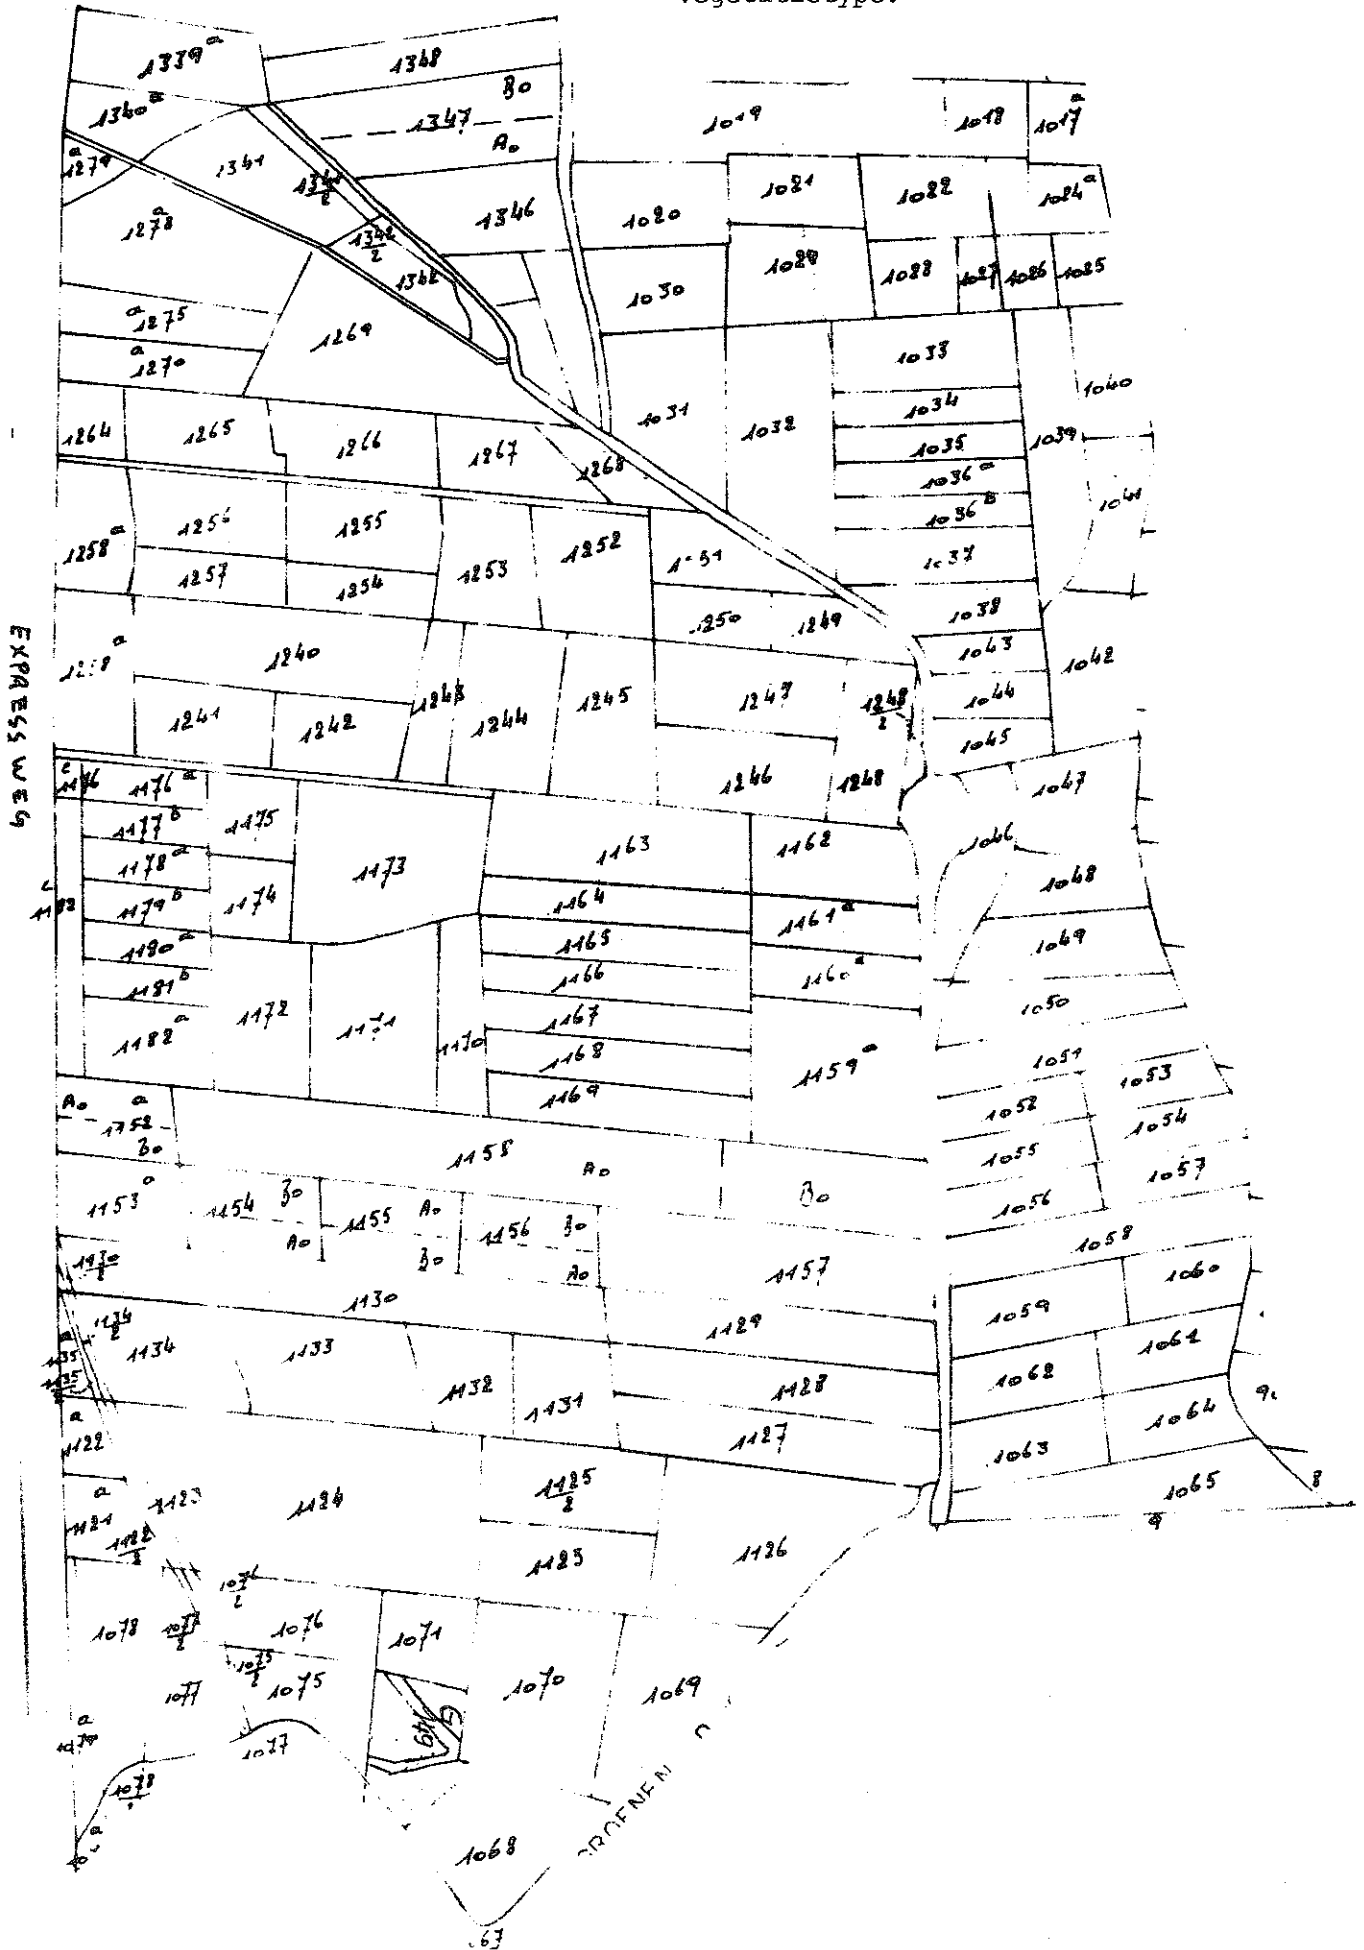 vegetatietype.
1339 a
1348
1340 a
Bo
1347
Ao
1019
1018
1017 a
a
1279
1341
1341/2
1346
1020
1021
1022
1024 a
1278 a
1342/2
1342
1030
1029
1028
1027
1026
1025
a
1275
1269
a
1270
1033
1040
1264
1265
1266
1267
1268
1031
1032
1034
1035
1039
1036 a
1036 B
1041
1258 a
1256
1255
1257
1254
1253
1252
1037
1250
1249
1038
1043
1042
1240
1241
1242
1243
1244
1245
1247
1248/2
1044
1045
1246
1248
EXPRESS WEG
c
1176
1176 a
1177 b
1175
1178 a
1173
1163
1162
1047
1046
1048
c
1179 b
1174
1164
1161 a
1180 a
1165
1049
1181 b
1166
1160 a
1182 a
1172
1171
1170
1167
1168
1169
1159 a
1050
1051
1053
1052
1054
Ao
a
1152
Bo
1158
Ao
Bo
1055
1057
1056
1153 a
1154
Bo
Ao
1155
Ao
Bo
1156
Bo
Ao
1157
1058
1060
1130/2
1130
1129
1059
1061
1134/2
a
1135
1135/2
1134
1133
1132
1131
1128
1062
1064
a
1122
1127
1063
1065
8
9
a
1121
1123
1124
1125/2
1122/2
1125
1126
1076/2
1078
1077/2
1076
1071
1075/2
1077
1075
1070
1069
G
149
1077
1078/2
a
1068
GROENEN
67